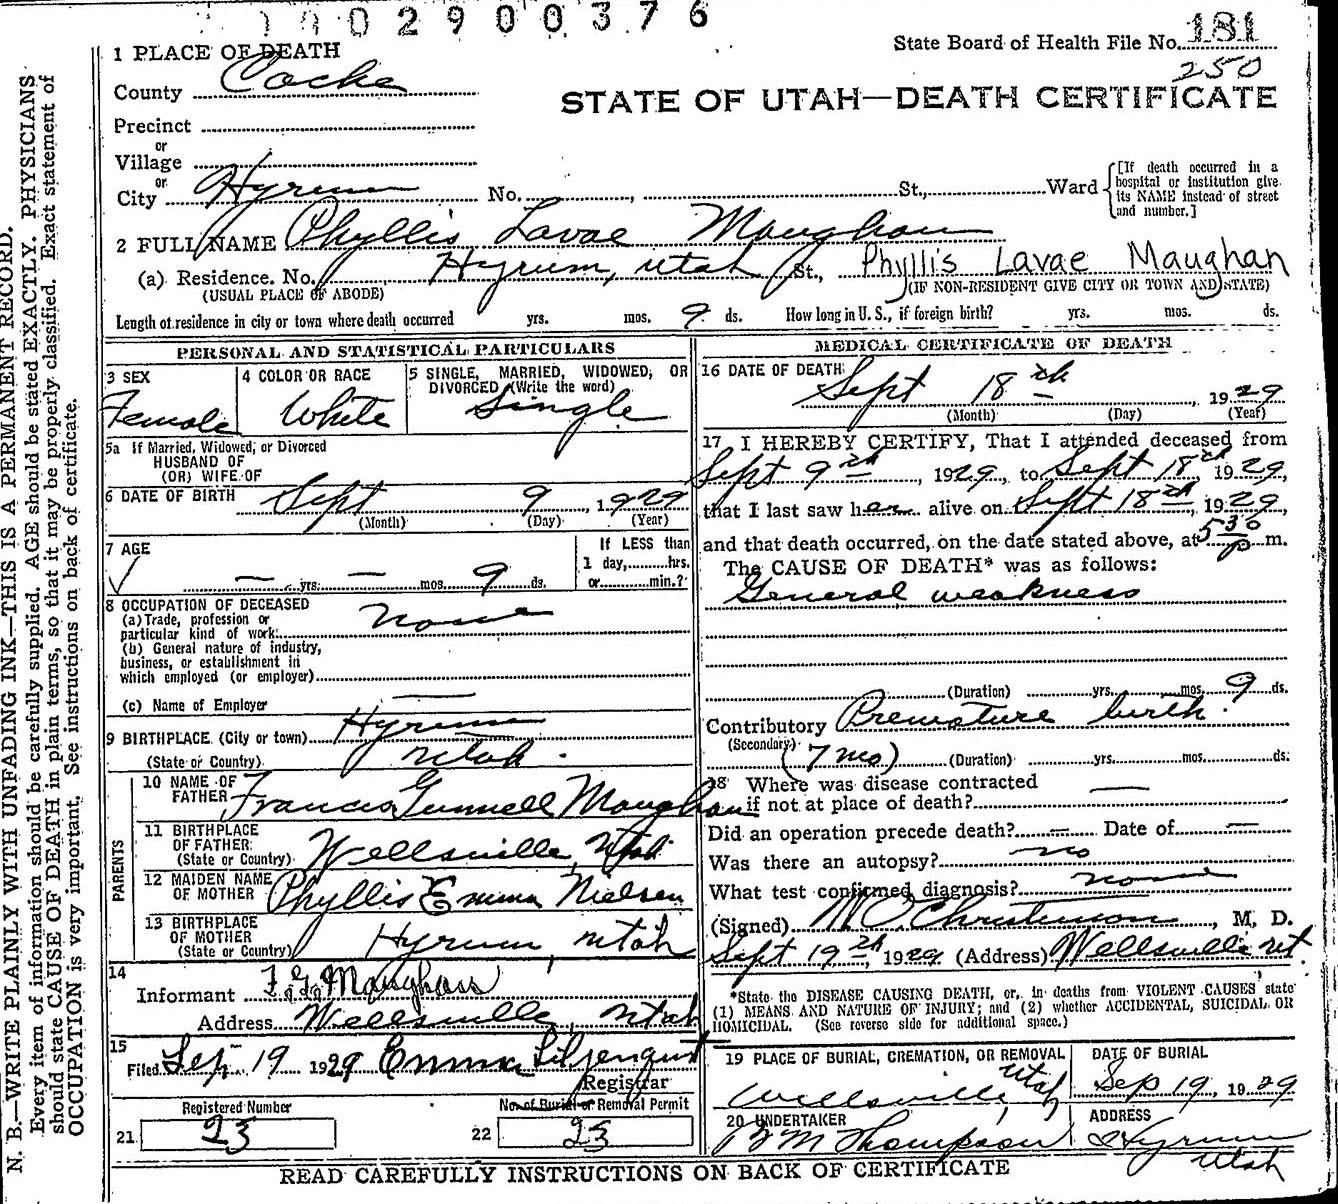 002900376
State Board of Health File No. 181
250
1 PLACE OF DEATH
County Cache
STATE OF UTAH—DEATH CERTIFICATE
Precinct
or
Village
or
City Hyrum No. , St., Ward
[If death occurred in a hospital or institution give its NAME instead of street and number.]
2 FULL NAME Phyllis Lavae Maughan
(a) Residence. No. Hyrum, Utah St., Phyllis Lavae Maughan
(USUAL PLACE OF ABODE) (IF NON-RESIDENT GIVE CITY OR TOWN AND STATE)
Length of residence in city or town where death occurred yrs. mos. 9 ds. How long in U. S., if foreign birth? yrs. mos. ds.
PERSONAL AND STATISTICAL PARTICULARS
3 SEX
Female
4 COLOR OR RACE
White
5 SINGLE, MARRIED, WIDOWED, OR
DIVORCED (Write the word)
Single
5a If Married, Widowed, or Divorced
HUSBAND OF
(OR) WIFE OF
6 DATE OF BIRTH Sept 9, 1929
(Month) (Day) (Year)
7 AGE
— yrs. — mos. 9 ds.
If LESS than
1 day, hrs.
or min.?
8 OCCUPATION OF DECEASED
(a) Trade, profession or
particular kind of work None
(b) General nature of industry,
business, or establishment in
which employed (or employer)
(c) Name of Employer —
9 BIRTHPLACE (City or town) Hyrum
(State or Country) Utah.
PARENTS
10 NAME OF
FATHER Francis Gunnell Maughan
11 BIRTHPLACE
OF FATHER
(State or Country) Wellsville, Utah
12 MAIDEN NAME
OF MOTHER Phyllis Emma Nielsen
13 BIRTHPLACE
OF MOTHER
(State or Country) Hyrum, Utah
14
Informant F. G. Maughan
Address Wellsville, Utah
15
Filed Sep. 19 1929 Emma Liljenquist
Registrar
Registered Number
21 23
No. of Burial or Removal Permit
22 23
MEDICAL CERTIFICATE OF DEATH
16 DATE OF DEATH
Sept 18th, 1929
(Month) (Day) (Year)
17 I HEREBY CERTIFY, That I attended deceased from
Sept 9th, 1929, to Sept 18th 1929,
that I last saw her alive on Sept 18th, 1929,
and that death occurred, on the date stated above, at 5 30 p m.
The CAUSE OF DEATH* was as follows:
General weakness
(Duration) yrs. mos. 9 ds.
Contributory Premature birth.
(Secondary) (7 mo) (Duration) yrs. mos. ds.
18 Where was disease contracted
if not at place of death? —
Did an operation precede death? — Date of —
Was there an autopsy? no
What test confirmed diagnosis? none
(Signed) Christenson, M. D.
Sept 19th, 1929 (Address) Wellsville Ut.
*State the DISEASE CAUSING DEATH, or, in deaths from VIOLENT CAUSES state
(1) MEANS AND NATURE OF INJURY; and (2) whether ACCIDENTAL, SUICIDAL OR
HOMICIDAL. (See reverse side for additional space.)
19 PLACE OF BURIAL, CREMATION, OR REMOVAL
Wellsville, Utah
DATE OF BURIAL
Sep 19, 1929
20 UNDERTAKER
Thompson
ADDRESS
Hyrum
Utah
READ CAREFULLY INSTRUCTIONS ON BACK OF CERTIFICATE
N. B.—WRITE PLAINLY WITH UNFADING INK—THIS IS A PERMANENT RECORD.
Every item of information should be carefully supplied. AGE should be stated EXACTLY. PHYSICIANS
should state CAUSE OF DEATH in plain terms, so that it may be properly classified. Exact statement of
OCCUPATION is very important. See instructions on back of certificate.